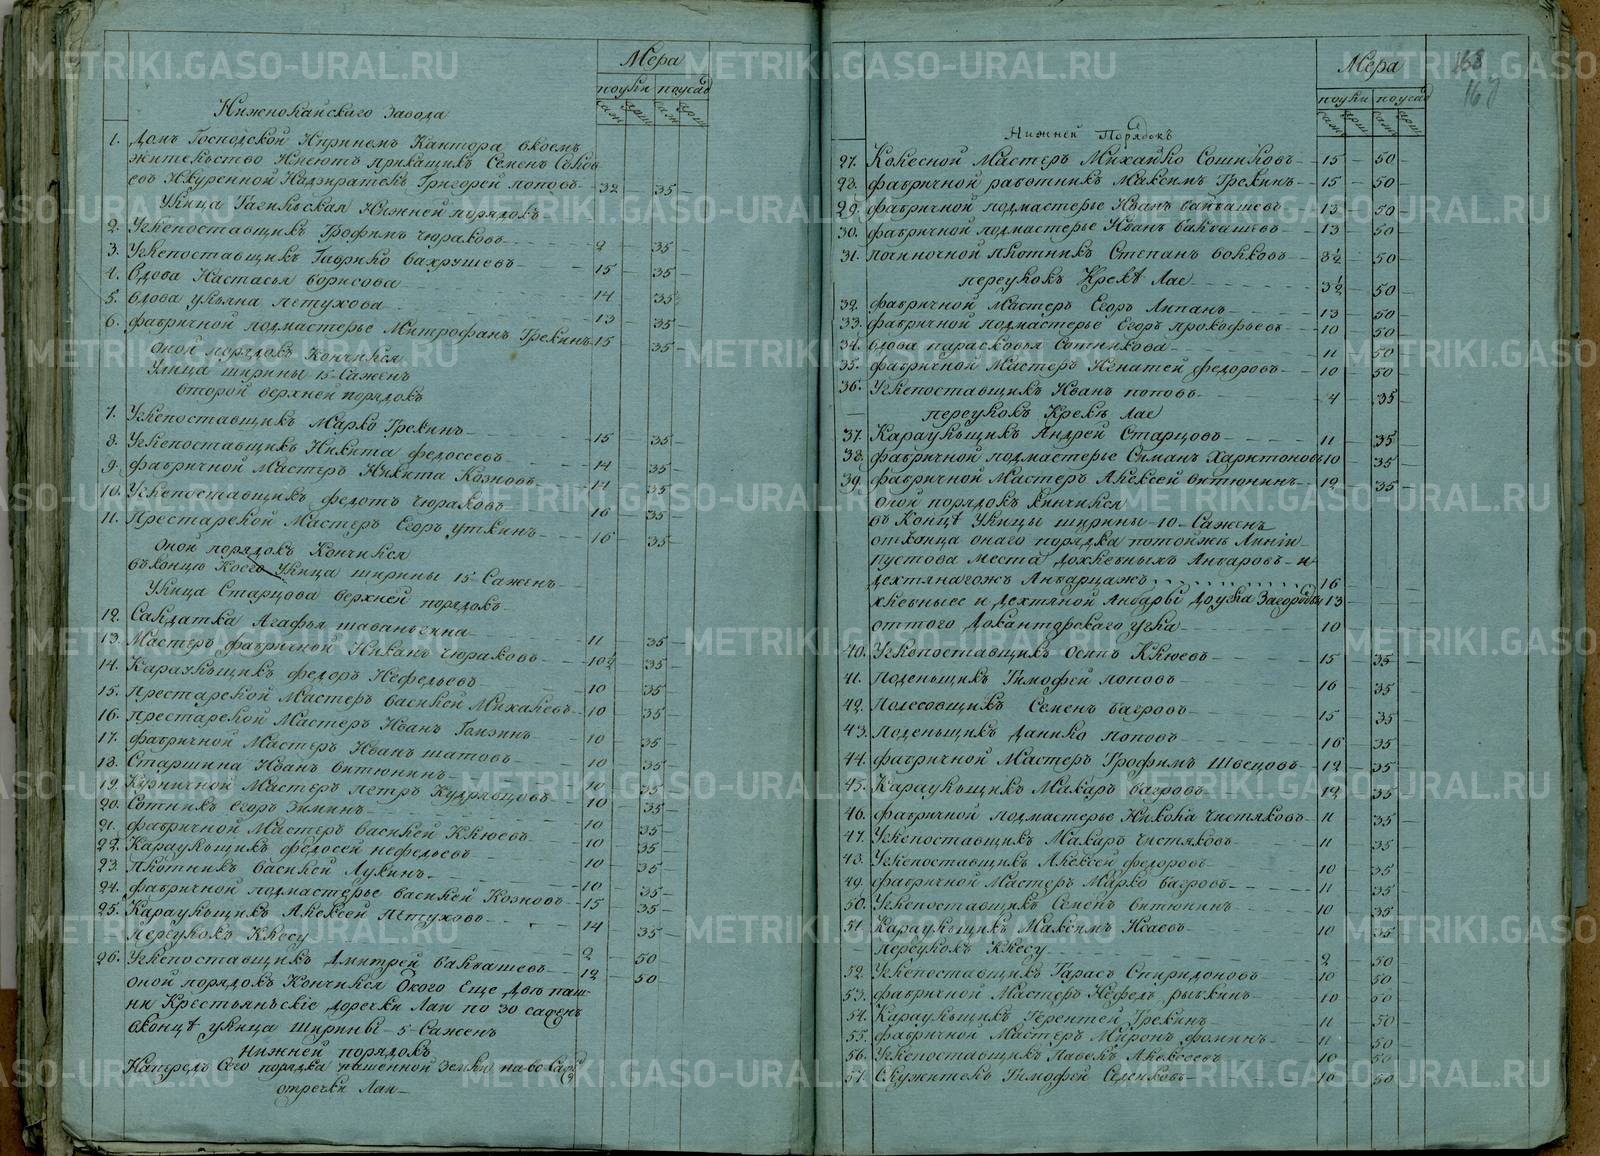 Мера
поули поусад
саж арш саж арш
Нижнолайскаго Завода
1. Домъ Господской Ипринемъ Кантора вкоемъ
жительство Имеютъ прикащикъ Семенъ Соков
евъ Икуренной Надзиратель Григорей поповъ 32 35
Улица Тагильская Нижней порядокъ
2. Углепоставщикъ Трофимъ чюраковъ 9 35
3. Углепоставщикъ Гаврило вахрушевъ 15 35
4. Вдова Настасья борисова 14 35
5. вдова ульяна петухова 13 35
6. фабричной подмастерье Митрофанъ Грекинъ 15 35
Оной порядокъ Кончился
Улица ширины 15 Саженъ
второй верхней порядокъ
7. Углепоставщикъ Марко Грекинъ 15 35
8. Углепоставщикъ Никита федосеевъ 14 35
9. фабричной Мастеръ Никита Козновъ 14 35
10. Углепоставщикъ федотъ чюраковъ 16 35
11. Престарелой Мастеръ Егоръ уткинъ 16 35
Оной порядокъ Кончился
въконцю Коего Улица ширины 15 Саженъ
Улица Старцова верхней порядокъ
12. Салдатка Агафья шабаньгина 11 35
13. Мастеръ фабричной Иванъ чюраковъ 10½ 35
14. Караульщикъ федоръ Нефедьевъ 10 35
15. Престарелой Мастеръ василей Михалевъ 10 35
16. Престарелой Мастеръ Иванъ Гомзинъ 10 35
17. фабричной Мастеръ Иванъ шатовъ 10 35
18. Старшина Иванъ витюнинъ 10 35
19. Куричной Мастеръ петръ Кудрявцовъ 10 35
20. Сотникъ егоръ Зиминъ 10 35
21. фабричной Мастеръ василей Клюевъ 10 35
22. Караульщикъ федосей нефедьевъ 10 35
23. Плотникъ василей Лукинъ 10 35
24. фабричной подмастерье василей Козновъ 15 35
25. Караульщикъ Алексей Петуховъ 14 35
переулокъ Клесу 2 50
26. Углепоставщикъ Дмитрей бакбашевъ 12 50
оной порядокъ Кончился Около Еще Две паш
ни Крестьянъскіе доречки Лаи по 30 саженъ
вконцѣ улица ширины 5 Саженъ
Нижней порядокъ
Напредъ Сего порядка пашенной Земли
отречки Лаи
168
168
Мера
поули поусад
саж арш саж арш
Нижней Порядокъ
27. Колесной Мастеръ Михайло Сошиковъ 15 50
28. фабричной работникъ Максимъ Грекинъ 15 50
29. фабричной подмастерье Иванъ байбашевъ 13 50
30. фабричной подмастерье Иванъ бакбашевъ 13 50
31. починочной плотникъ Степанъ волковъ 8½ 50
переулокъ Креке Лае 3½ 50
32. фабричной Мастеръ Егоръ Липанъ 13 50
33. фабричной подмастерье Егоръ прокофьевъ 10 50
34. вдова парасковья Сотникова 11 50
35. фабричной Мастеръ Игнатей федоровъ 10 50
36. Углепоставщикъ Иванъ поповъ 4 35
переулокъ Креке Лае
37. Караульщикъ Андрей Старцовъ 11 35
38. фабричной подмастерье Симанъ Харитоновъ 10 35
39. фабричной Мастеръ Алексей витюнинъ 12 35
оной порядокъ кончился
въ Концѣ Улицы ширины 10 Саженъ
отконца онаго порядка потойже Линіи
пустова места дохлебныхъ Анбаровъ и
дехтянагожъ Анбарцажъ 16
хлебныее и дехтяной Анбары Доугла Загородки 13
оттого Доканторскаго угла 10
40. Углепоставщикъ Осипъ Клюевъ 15 35
41. Поденьщикъ Тимофей поповъ 16 35
42. Полесовщикъ Семенъ багровъ 15 35
43. Поденьщикъ Данило поповъ 16 35
44. фабричной Мастеръ Трофимъ Швецовъ 12 35
45. Караульщикъ Макаръ багровъ 12 35
46. фабричной подмастерье Никола чистяковъ 11 35
47. Углепоставщикъ Макаръ чистяковъ 11 35
48. Углепоставщикъ Алексей федоровъ 10 35
49. фабричной Мастеръ Марко багровъ 11 35
50. Углепоставщикъ Семенъ витюнинъ 10 35
51. Караульщикъ Максимъ Исаевъ 10 35
переулокъ Клесу 2 50
52. Углепоставщикъ Тарасъ Спиридоновъ 10 50
53. фабричной Мастеръ Нефедъ рыбкинъ 10 50
54. Караульщикъ Терентей Грекинъ 11 50
55. фабричной Мастеръ Миронъ фоминъ 11 50
56. Углепоставщикъ Павелъ Алексеевъ 10 50
57. Служитель Тимофей Селенковъ 10 50
METRIKI.GASO-URAL.RU